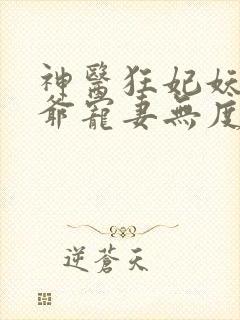 神醫狂妃妖
爺寵妻無度
逆蒼天